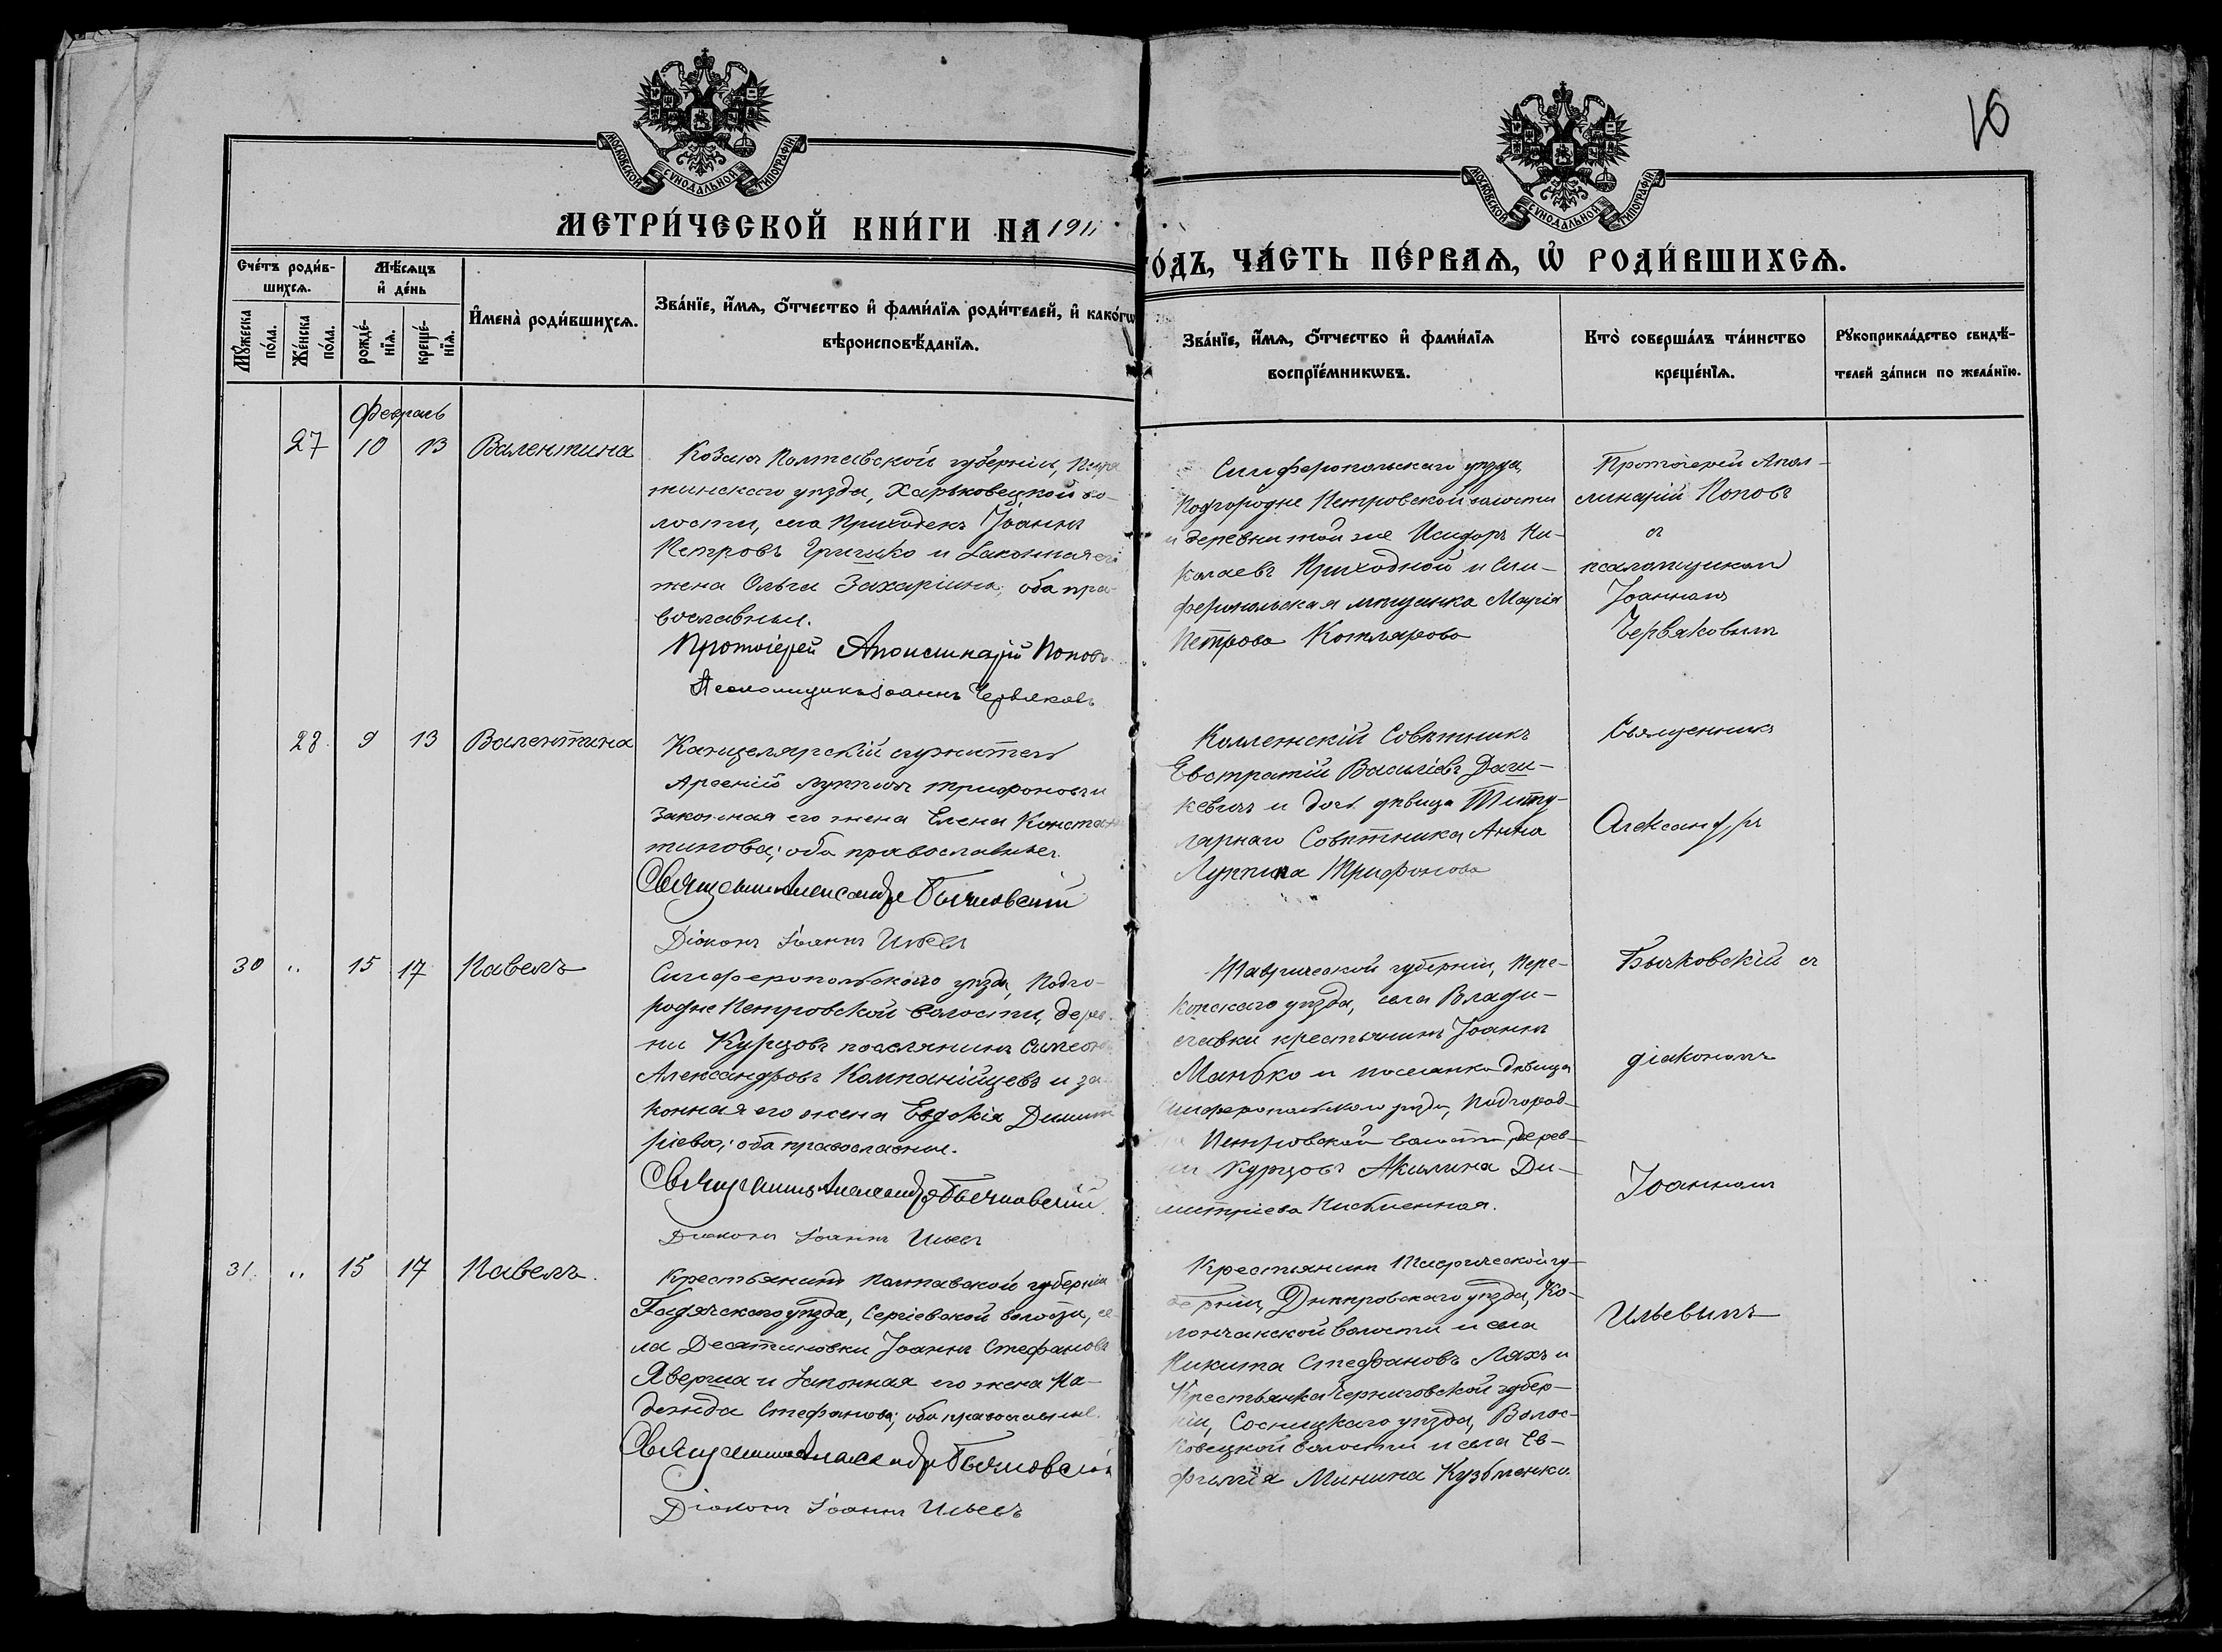 16
МОСКОВСКОЙ СѴНОДАЛЬНОЙ ТИПОГРАФІИ
МОСКОВСКОЙ СѴНОДАЛЬНОЙ ТИПОГРАФІИ
МЕТРИ́ЧЕСКОЙ КНИ́ГИ НА 1911
ГО́ДЪ, ЧА́СТЬ ПЕ́РВАѦ, Ѡ РОДИ́ВШИХСѦ.
Сче́тъ роди́в-
шихсѧ.
Мѣ́сѧцъ
и де́нь
Мꙋ́жеска
по́ла.
Же́нска
по́ла.
рожде́-
нїѧ.
креще́-
нїѧ.
Имена̀ роди́вшихсѧ.
Зва́нїе, и́мѧ, ѻ́тчество и фами́лїѧ роди́телей, и како́гѡ
вѣроисповѣ́данїѧ.
Зва́нїе, и́мѧ, ѻ́тчество и фами́лїѧ
воспрїе́мникѡвъ.
Кто̀ соверша́лъ та́инство
креще́нїѧ.
Рꙋкоприкла́дство свидѣ́-
телей за́писи по жела́нїю.
Февраль
27 10 13 Валентина
Козакъ Полтавской губерніи, Пиря
тинскаго уѣзда, Харьковецкой во-
лости, села Приходекъ Іоаннъ
Петровъ Гришко и законная его
жена Ольга Захаріина; оба пра-
вославные.
Протоіерей Аполлинарій Поповъ
Псаломщикъ Іоаннъ Червяковъ
Симферопольскаго уѣзда
Подгородне Петровской волости
и деревни той же Исидоръ Ни-
колаевъ Приходной и Сим-
феропольская мѣщанка Марія
Петрова Котлярова
Протоіерей Апол-
линарій Поповъ
съ
псаломщикомъ
Іоанномъ
Червяковымъ
28 9 13 Валентина
Канцелярскій служитель
Арсеній Лупповъ Трифоновъ и
законная его жена Елена Констан
тинова; оба православные.
Священникъ Александръ Бычковскій
Діаконъ Іоаннъ Ильевъ
Коллежскій Совѣтникъ
Евстратій Василіевъ Даш-
кевичъ и дочь дѣвица Титу-
лярнаго Совѣтника Анна
Луппова Трифонова
Священникъ
Александръ
30 " 15 17 Павелъ
Симферопольскаго уѣзда, Подго-
родне Петровской волости, дерев-
ни Курцовъ поселянинъ Симеонъ
Александровъ Компанійцевъ и за-
конная его жена Евдокія Димит
ріева; оба православные.
Священникъ Александръ Бычковскій
Діаконъ Іоаннъ Ильевъ
Таврической губерніи, Пере-
копскаго уѣзда, села Влади-
славки крестьянинъ Іоаннъ
Манько и поселянка дѣвица
Симферопольскаго уѣзда, Подгород-
Петровской волости дерев-
ни Курцовъ Акилина Ди-
митріева Письменная.
Бычковскій съ
діакономъ
Іоанномъ
31. " 15 17 Павелъ.
Крестьянинъ Полтавской губерніи
Гадячскаго уѣзда, Сергіевской волости, се-
ла Десятиновки Іоаннъ Стефановъ
Яверша и законная его жена На-
дежда Стефанова; оба православные.
Священникъ Александръ Бычковскій
Діаконъ Іоаннъ Ильевъ
Крестьянинъ Таврической гу-
берніи, Днѣпровскаго уѣзда, Ко-
лончакской волости и села
Никита Стефановъ Ляхъ и
Крестьянка Черниговской губер-
ніи, Сосницкаго уѣзда, Волос-
ковецкой волости и села Ев-
фимія Минина Кузьменко.
Ильевымъ